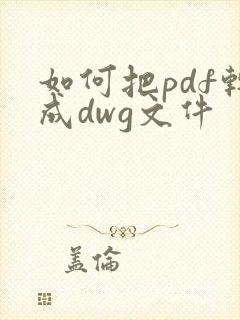 如何把pdf轉
成dwg文件
蓋倫